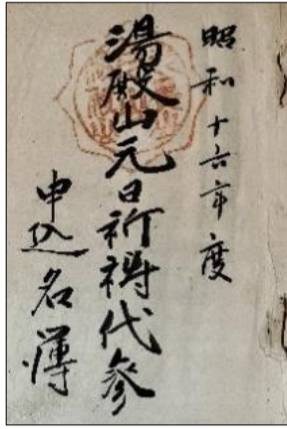 昭和十六年度
湯殿山元日祈禱代參
申込名簿